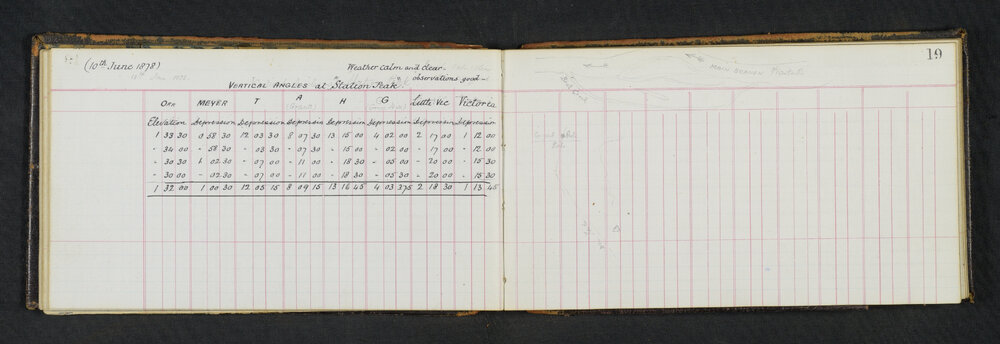 (10th June 1878)
Weather calm and clear
observations good
VERTICAL ANGLES at "Station Peak".
ORR MEYER T A H G Little Vic Victoria
Elevation Depression Depression Depression Depression Depression Depression Depression
1 33 30 0 58 30 12 03 30 8 07 30 13 15 00 4 02 00 2 17 00 1 12 00
" 34 00 " 58 30 " 03 30 " 07 30 " 15 00 " 02 00 " 17 00 " 12 00
" 30 30 1 02 30 " 07 00 " 11 00 " 18 30 " 05 00 " 20 00 " 15 30
" 30 00 " 02 30 " 07 00 " 11 00 " 18 30 " 05 30 " 20 00 " 15 30
1 32 00 1 00 30 12 05 15 8 09 15 13 16 45 4 03 37.5 2 18 30 1 13 45
19